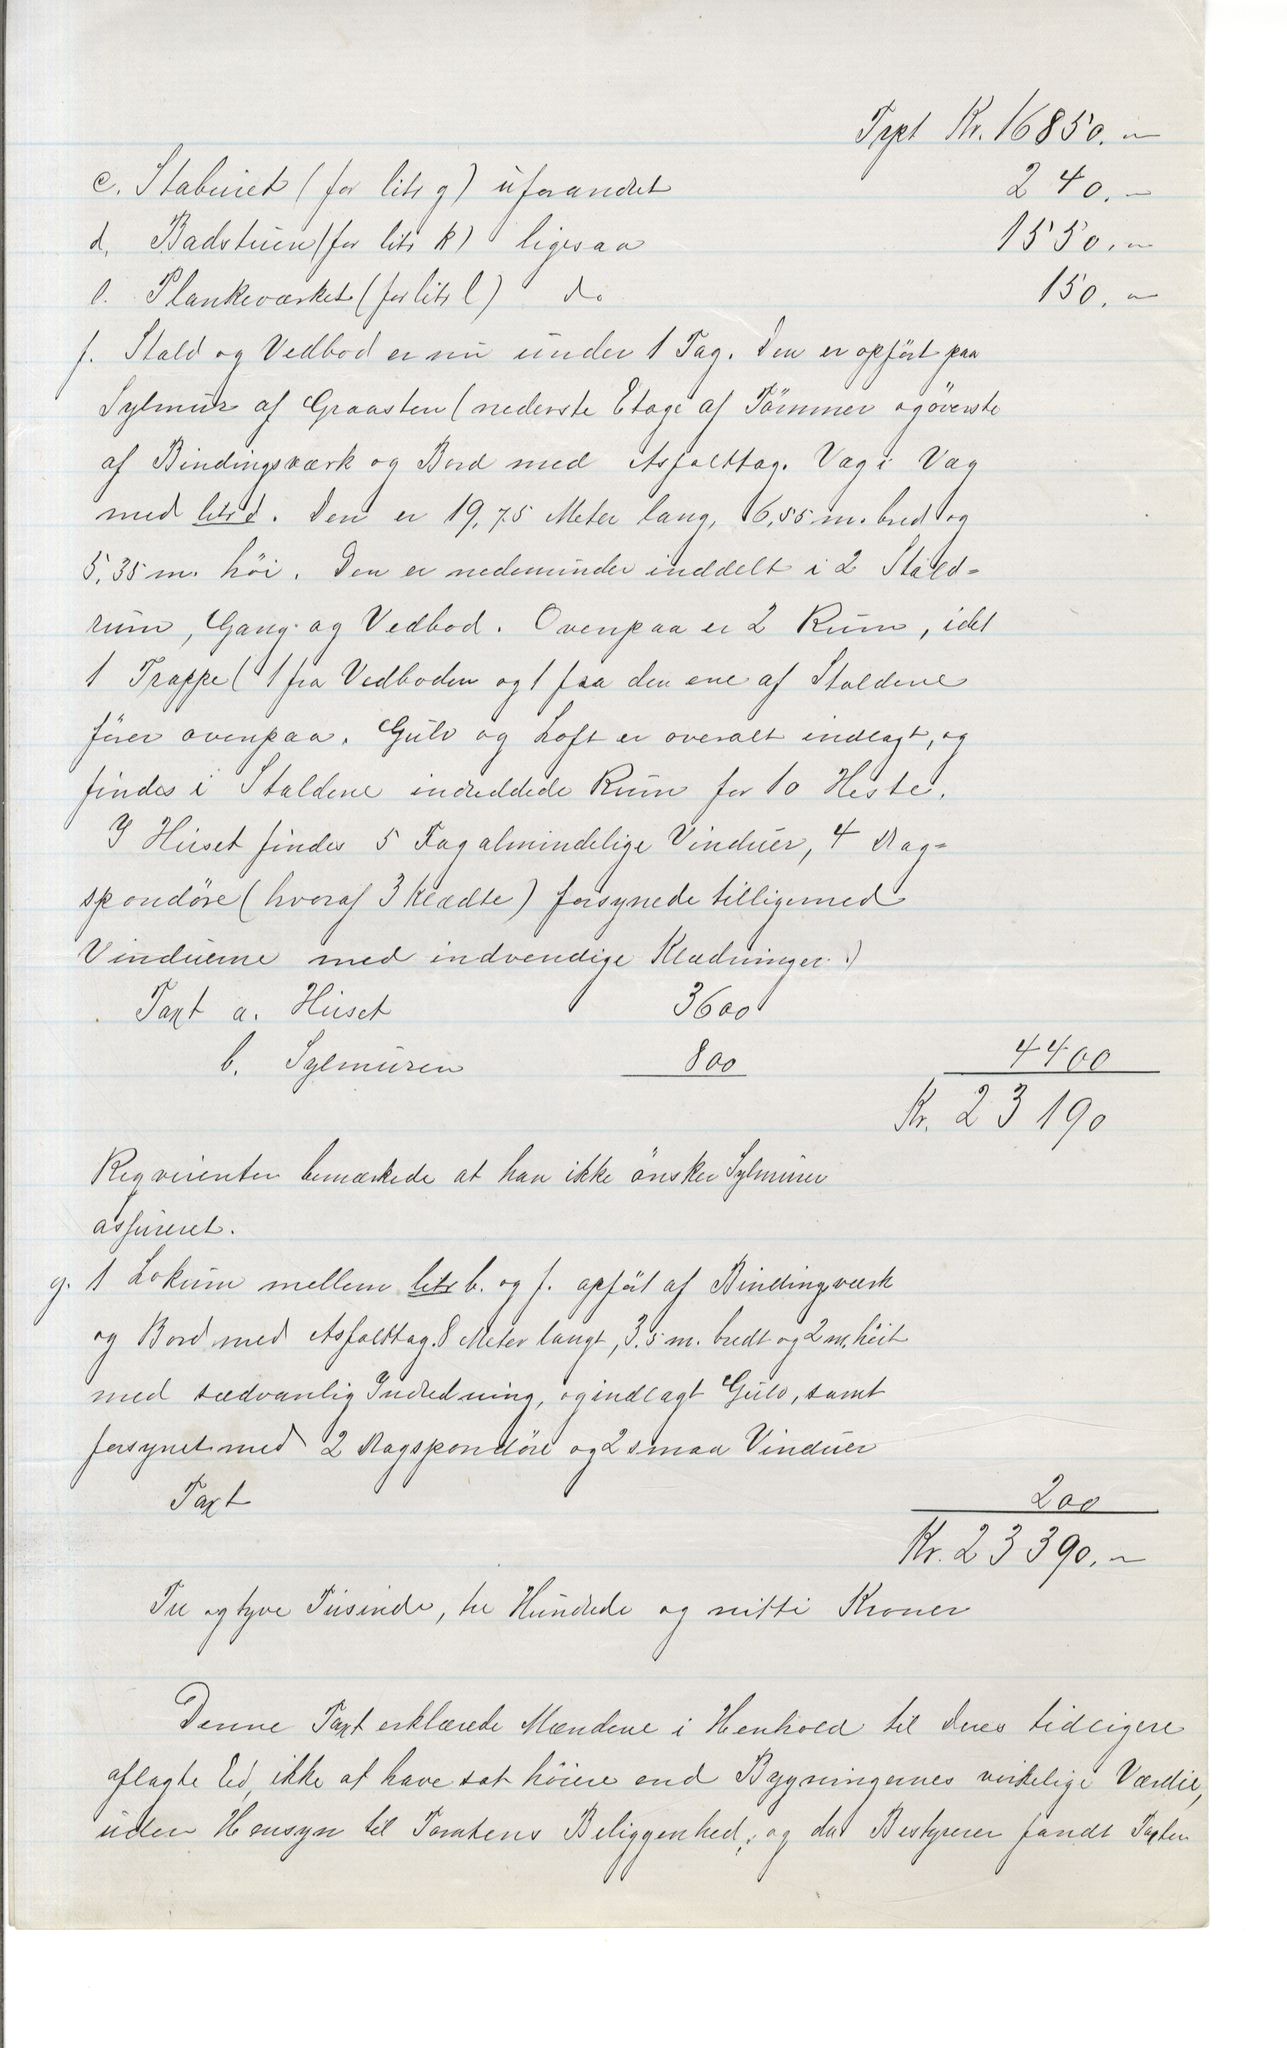 Trpt Kr. 16850.–
c. Staburet (for litr g) uforandret 240.–
d. Badstuen (for litr k) ligesaa 1550.–
e. Plankeværket (for litr l) do 150.–
f. Stald og Vedbod er nu under 1 Tag. Den er opført paa
Sylmur af Graasten (nederste Etage af Tömmer og överste
af Bindingsværk og Bord med Asfalttag. Væg i Væg
med litr d. Den er 19,75 Meter lang, 6,55 m. bred og
5,35 m. höi. Den er nedenunder inddelt i 2 Stald=
rum, Gang og Vedbod. Ovenpaa er 2 Rum, idet
1 Trappe (1 fra Vedboden og 1 fra den ene af Staldene
förer ovenpaa. Gulv og Loft er overalt indlagt, og
findes i Staldene indreddede Rum for 10 Heste.
I Huset findes 5 Fag almindelige Vinduer, 4 Rag=
spondöre (hvoraf 3 klædte) forsynede tilligemed
Vinduerne med indvendige Klædninger.)
Taxt a. Huset 3600
b. Sylmuren 800 4400
Kr. 23190
Reqvirenten bemærkede at han ikke önsker Sylmuren
assureret.
g. 1 Lokum mellem litr b. og f. opfört af Bindingsværk
og Bord med Asfalttag. 8 Meter langt, 3.5 m. bredt og 2 m. höit
med sædvanlig Indredning, og indlagt Gulv, samt
forsynet med 2 Ragspondöre og 2 smaa Vinduer
Taxt 200
Kr. 23390.–
Tre og tyve Tusinde, tre Hundrede og nitti Kroner
Denne Taxt erklærede Mændene i Henhold til deres tidligere
aflagte Ed, ikke at have sat höiere end Bygningernes virkelige Værdie,
uden Hensyn til Tomtens Beliggenhed, og da Bestyrer fandt Taxten